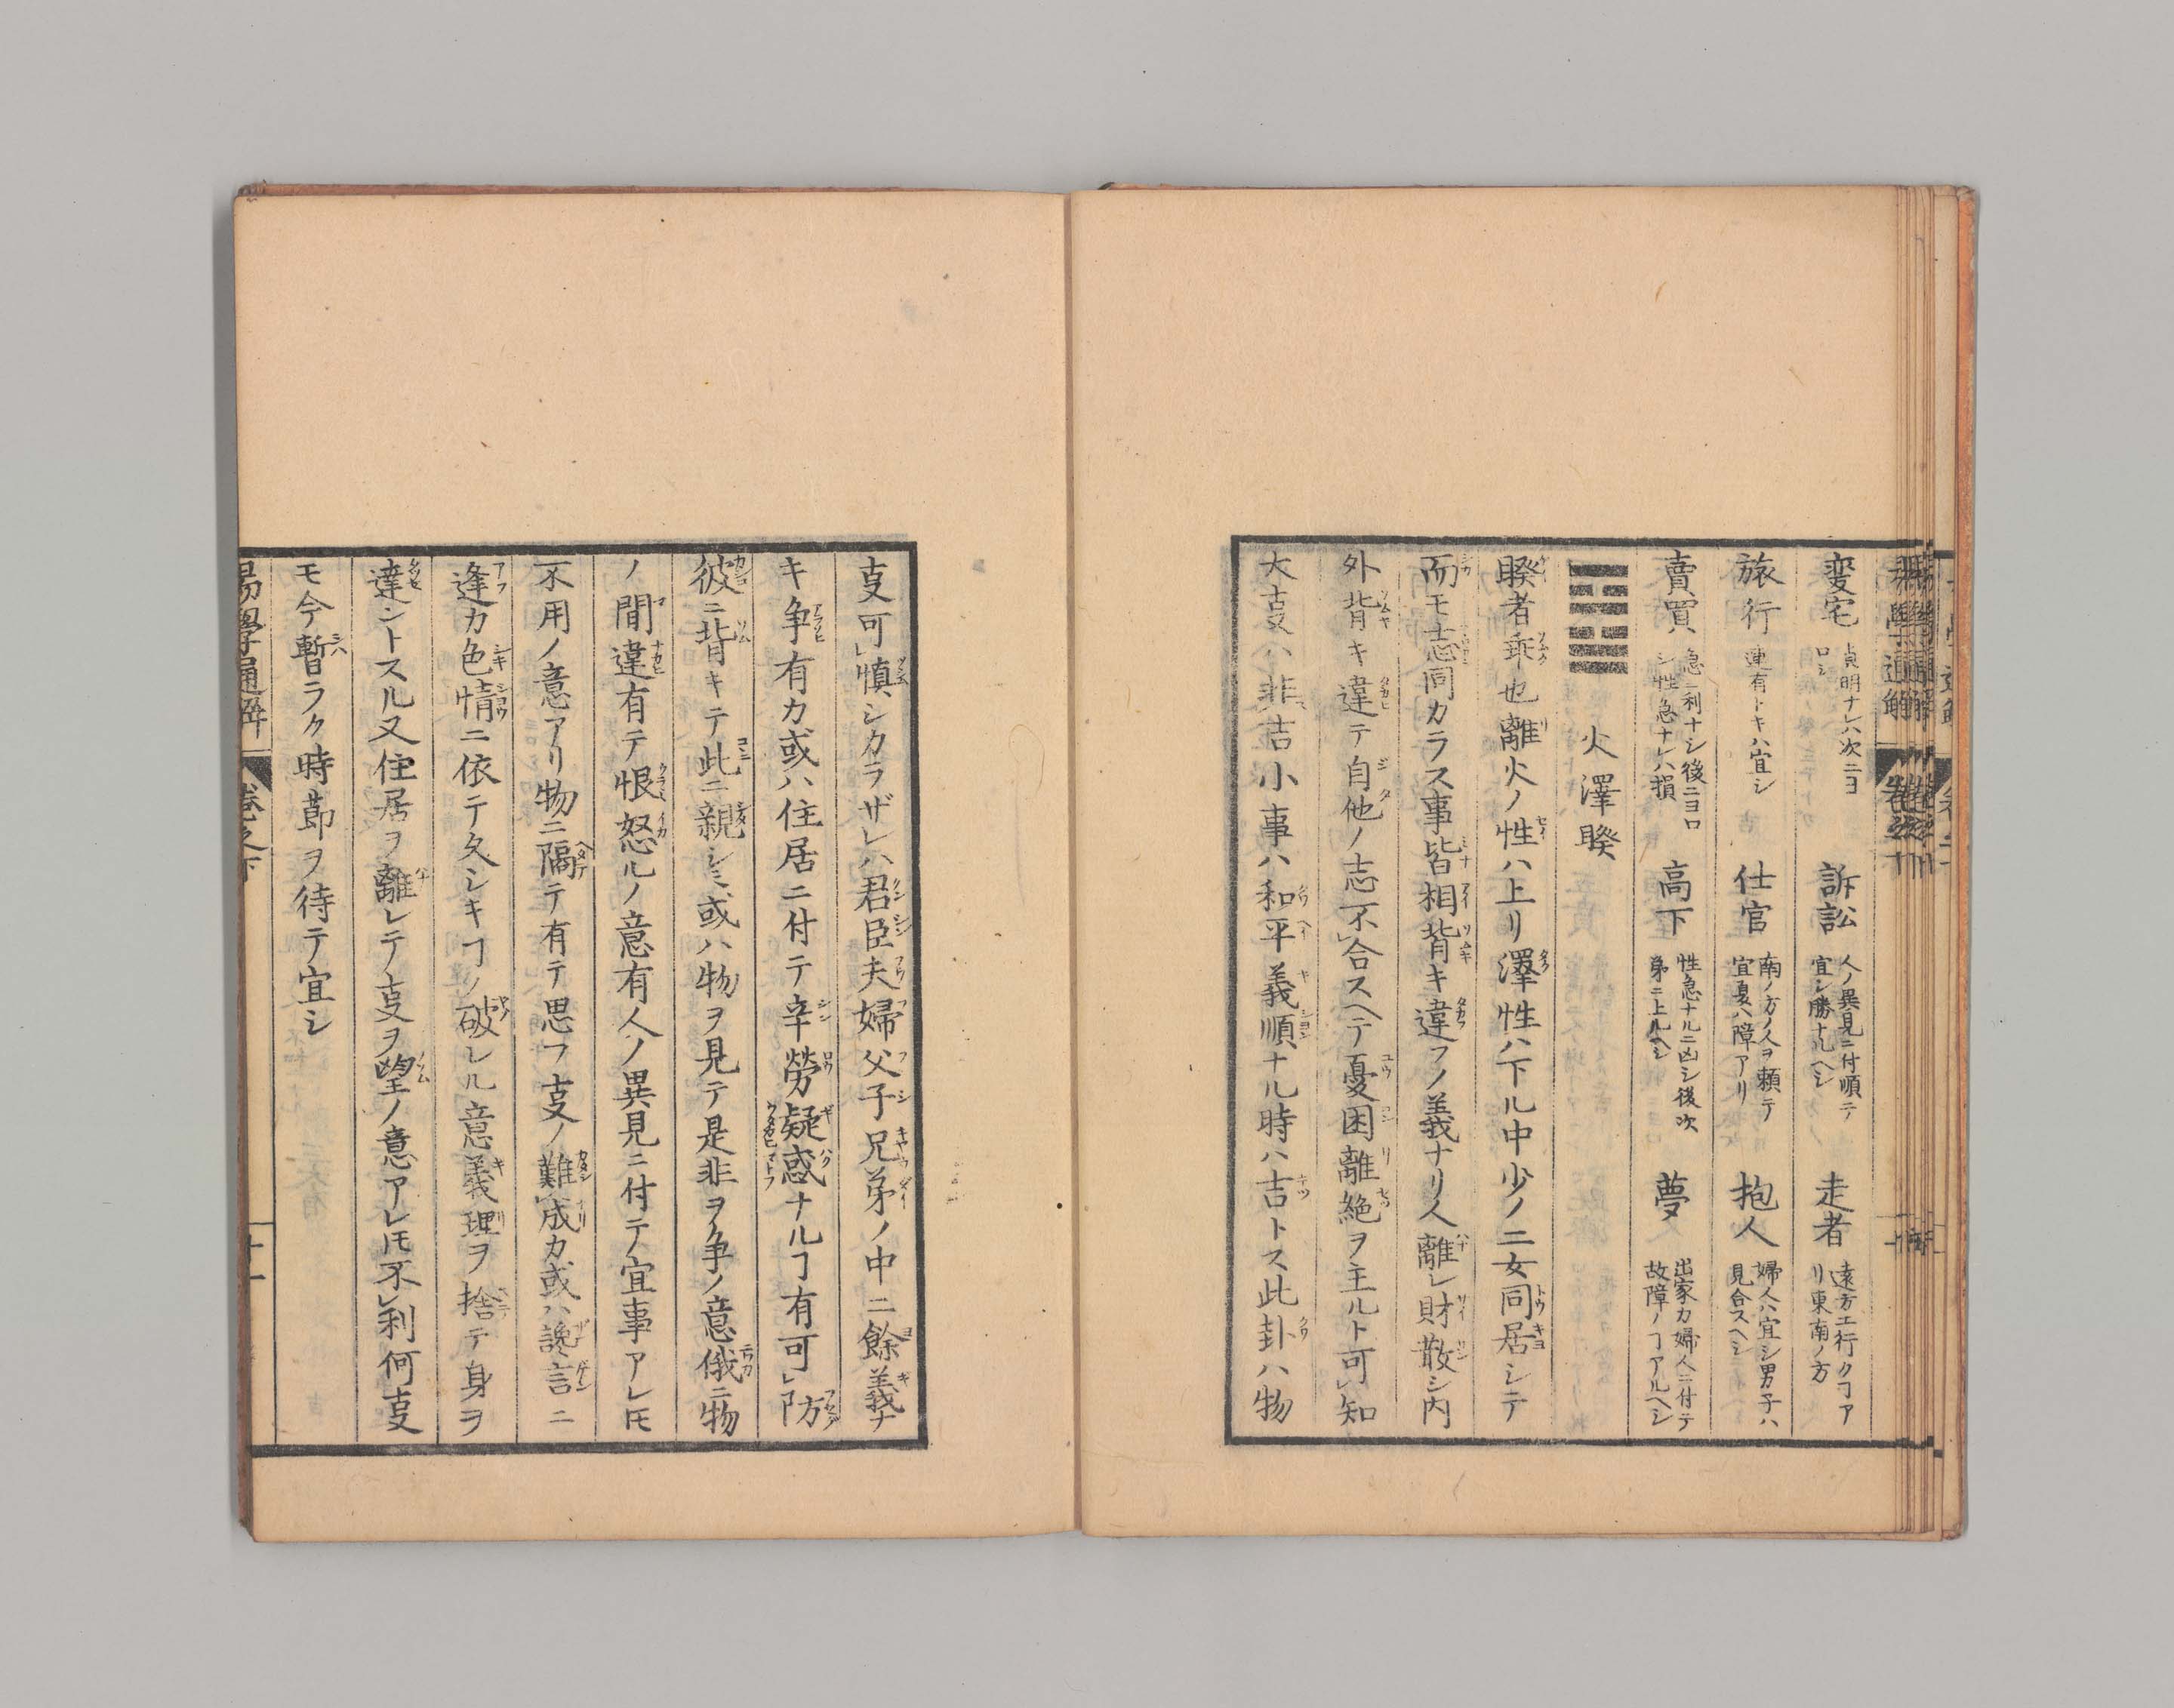 変宅 貞明ナレハ次ニヨロシ 訴訟 人ノ異見ニ付順テ宜シ勝ナルヘシ 走者 遠方エ行クヿアリ東南ノ方
旅行 連有トキハ宜シ 仕官 南ノ方ノ人ヲ頼テ宜夏ハ障アリ 抱人 婦人ハ宜シ男子ハ見合スヘシ
賣買 急ニ利ナシ後ニヨロシ性急ナレハ損 高下 性急ナルニ凶シ後次第ニ上ルヘシ 夢 出家カ婦人ニ付テ故障ノヿアルヘシ
火澤睽
睽者乖也離火ノ性ハ上リ澤性ハ下ル中少ノ二女同居シテ
而モ志同カラス事皆相背キ違フノ義ナリ人離レ財散シ内
外背キ違テ自他ノ志不レ合スヘテ憂困離絶ヲ主ルト可レ知
大叓ハ非吉小事ハ和平義順ナル時ハ吉トス此卦ハ物
叓可レ慎シカラザレハ君臣夫婦父子兄弟ノ中ニ餘義ナ
キ争有カ或ハ住居ニ付テ辛勞疑惑ナルヿ有可レ防
彼ニ背キテ此ニ親シミ或ハ物ヲ見テ是非ヲ争ノ意俄ニ物
ノ間違有テ恨怒ルノ意有人ノ異見ニ付テ宜事アレ𪜈
不用ノ意アリ物ニ隔テ有テ思フ叓ノ難レ成カ或ハ讒言ニ
逢カ色情ニ依テ久シキヿノ破レル意義理ヲ捨テ身ヲ
達ントスル又住居ヲ離レテ叓ヲ望ノ意アレ𪜈不レ利何叓
モ今暫ラク時節ヲ待テ宜シ
易學通解 巻之下 十一